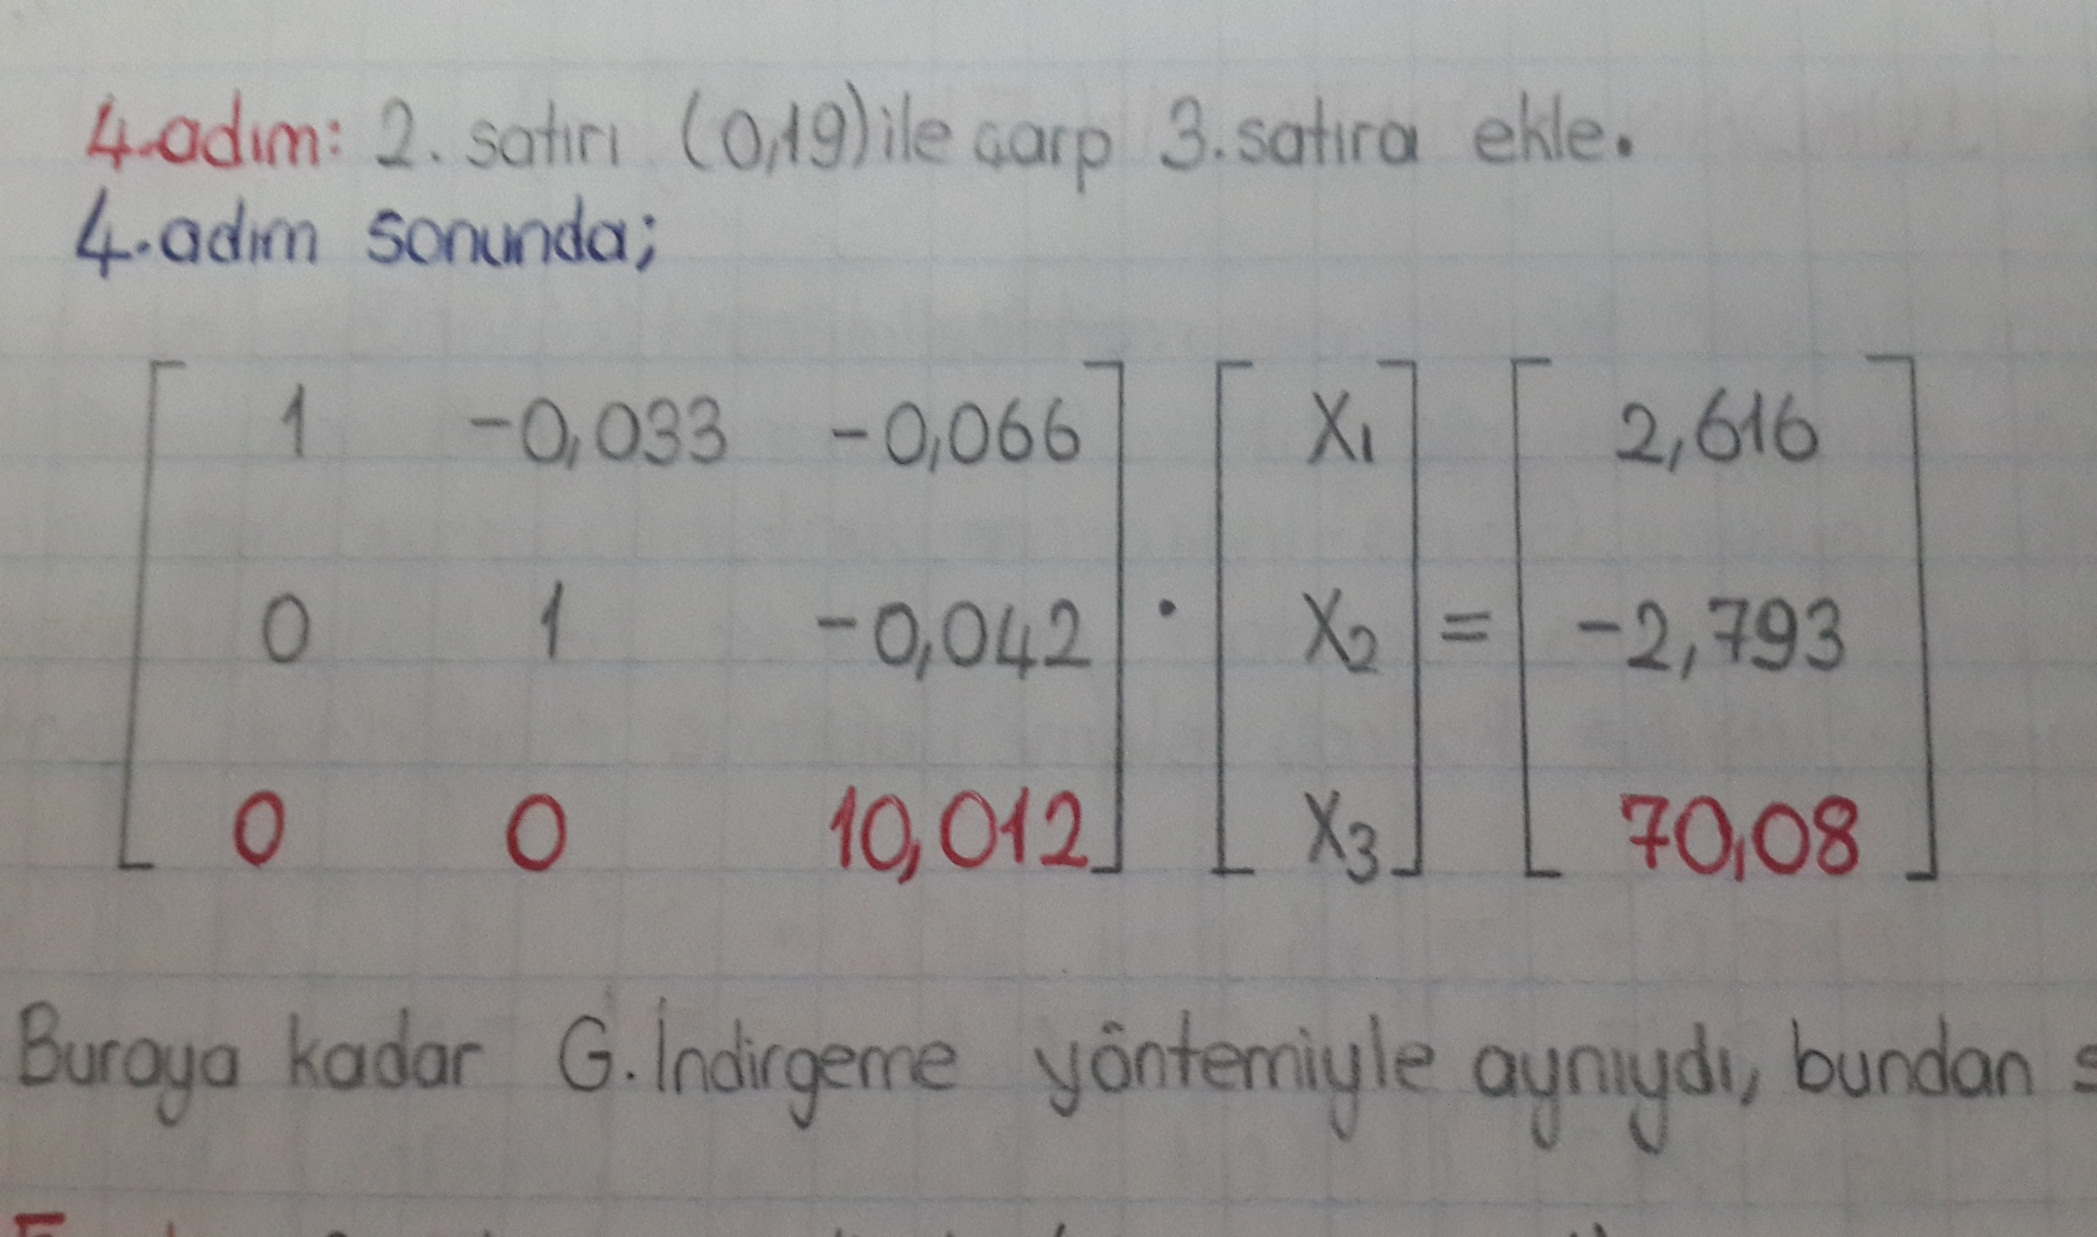 4.adım: 2. satırı (0,19) ile çarp 3. satıra ekle.
4.adım sonunda;
1 -0,033 -0,066 X1 2,616
0 1 -0,042 · X2 = -2,793
0 0 10,012 X3 70,08
Buraya kadar G. İndirgeme yöntemiyle aynıydı, bundan